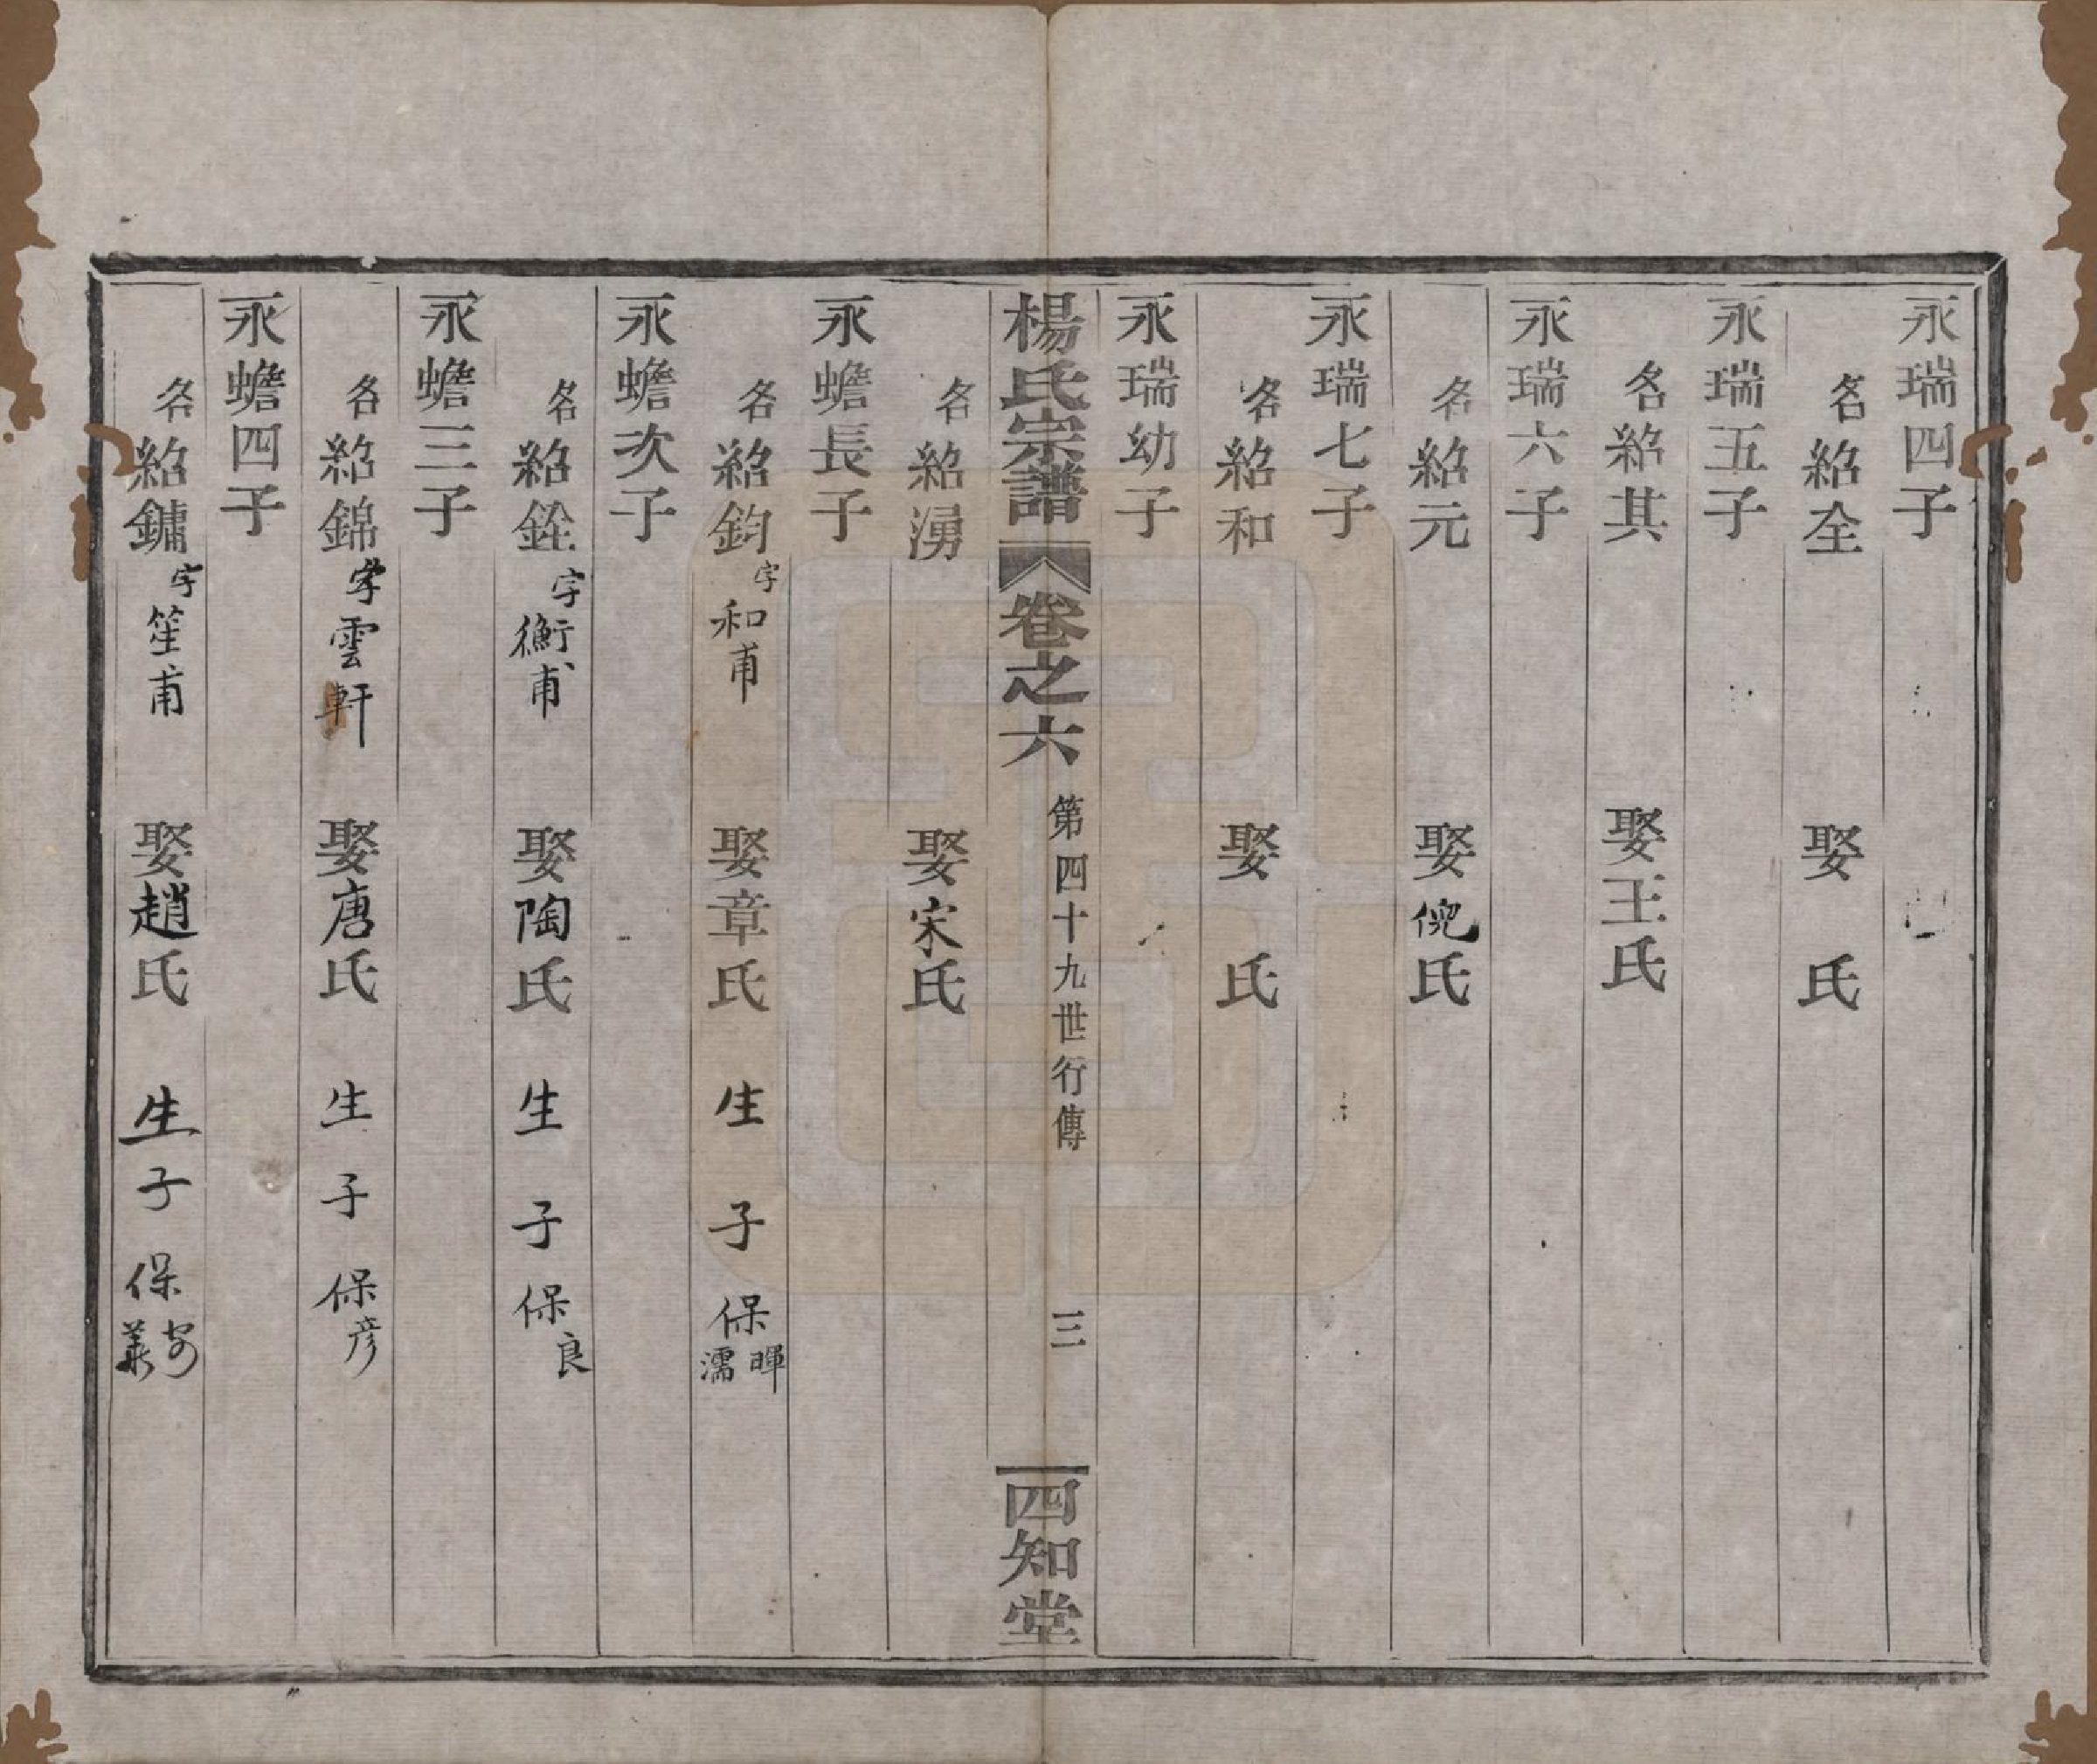 永瑞四子
名紹全 娶 氏
永瑞五子
名紹其 娶王氏
永瑞六子
名紹元 娶倪氏
永瑞七子
名紹和 娶 氏
永瑞幼子
楊氏宗譜 卷之六 第四十九世行傳 三 四知堂
名紹湧 娶宋氏
永蟾長子
名紹鈞字和甫 娶章氏 生子保暉濡
永蟾次子
名紹銓字衡甫 娶陶氏 生子保良
永蟾三子
名紹錦字雲軒 娶唐氏 生子保彦
永蟾四子
名紹鏞字笙甫 娶趙氏 生子保